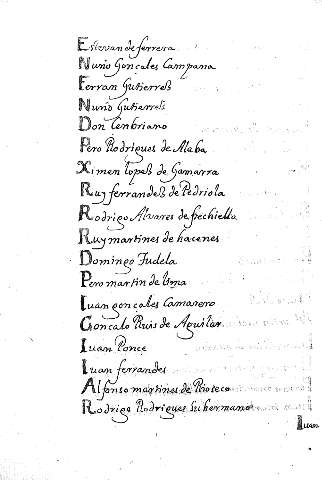 Estevan de ferrera
Nuño Gonçales Campana
Ferran Gutierreß
Nuño Gutierreß
Don Cenbriano
Pero Rodrigues de Alaba
Ximen lopeß de Gamarra
Ruy ferrandeß de Pedriola
Rodrigo Alvares de fechiella
Ruy martines de hacenes
Domingo Tudela
Pero martin de Uma
Iuan gonçales Camarero
Gonçalo Ruis de Aguilar
Iuan Ponce
Iuan ferrandes
Alfonso martines de Rioseco
Rodrigo Rodrigues su hermano
Iuan